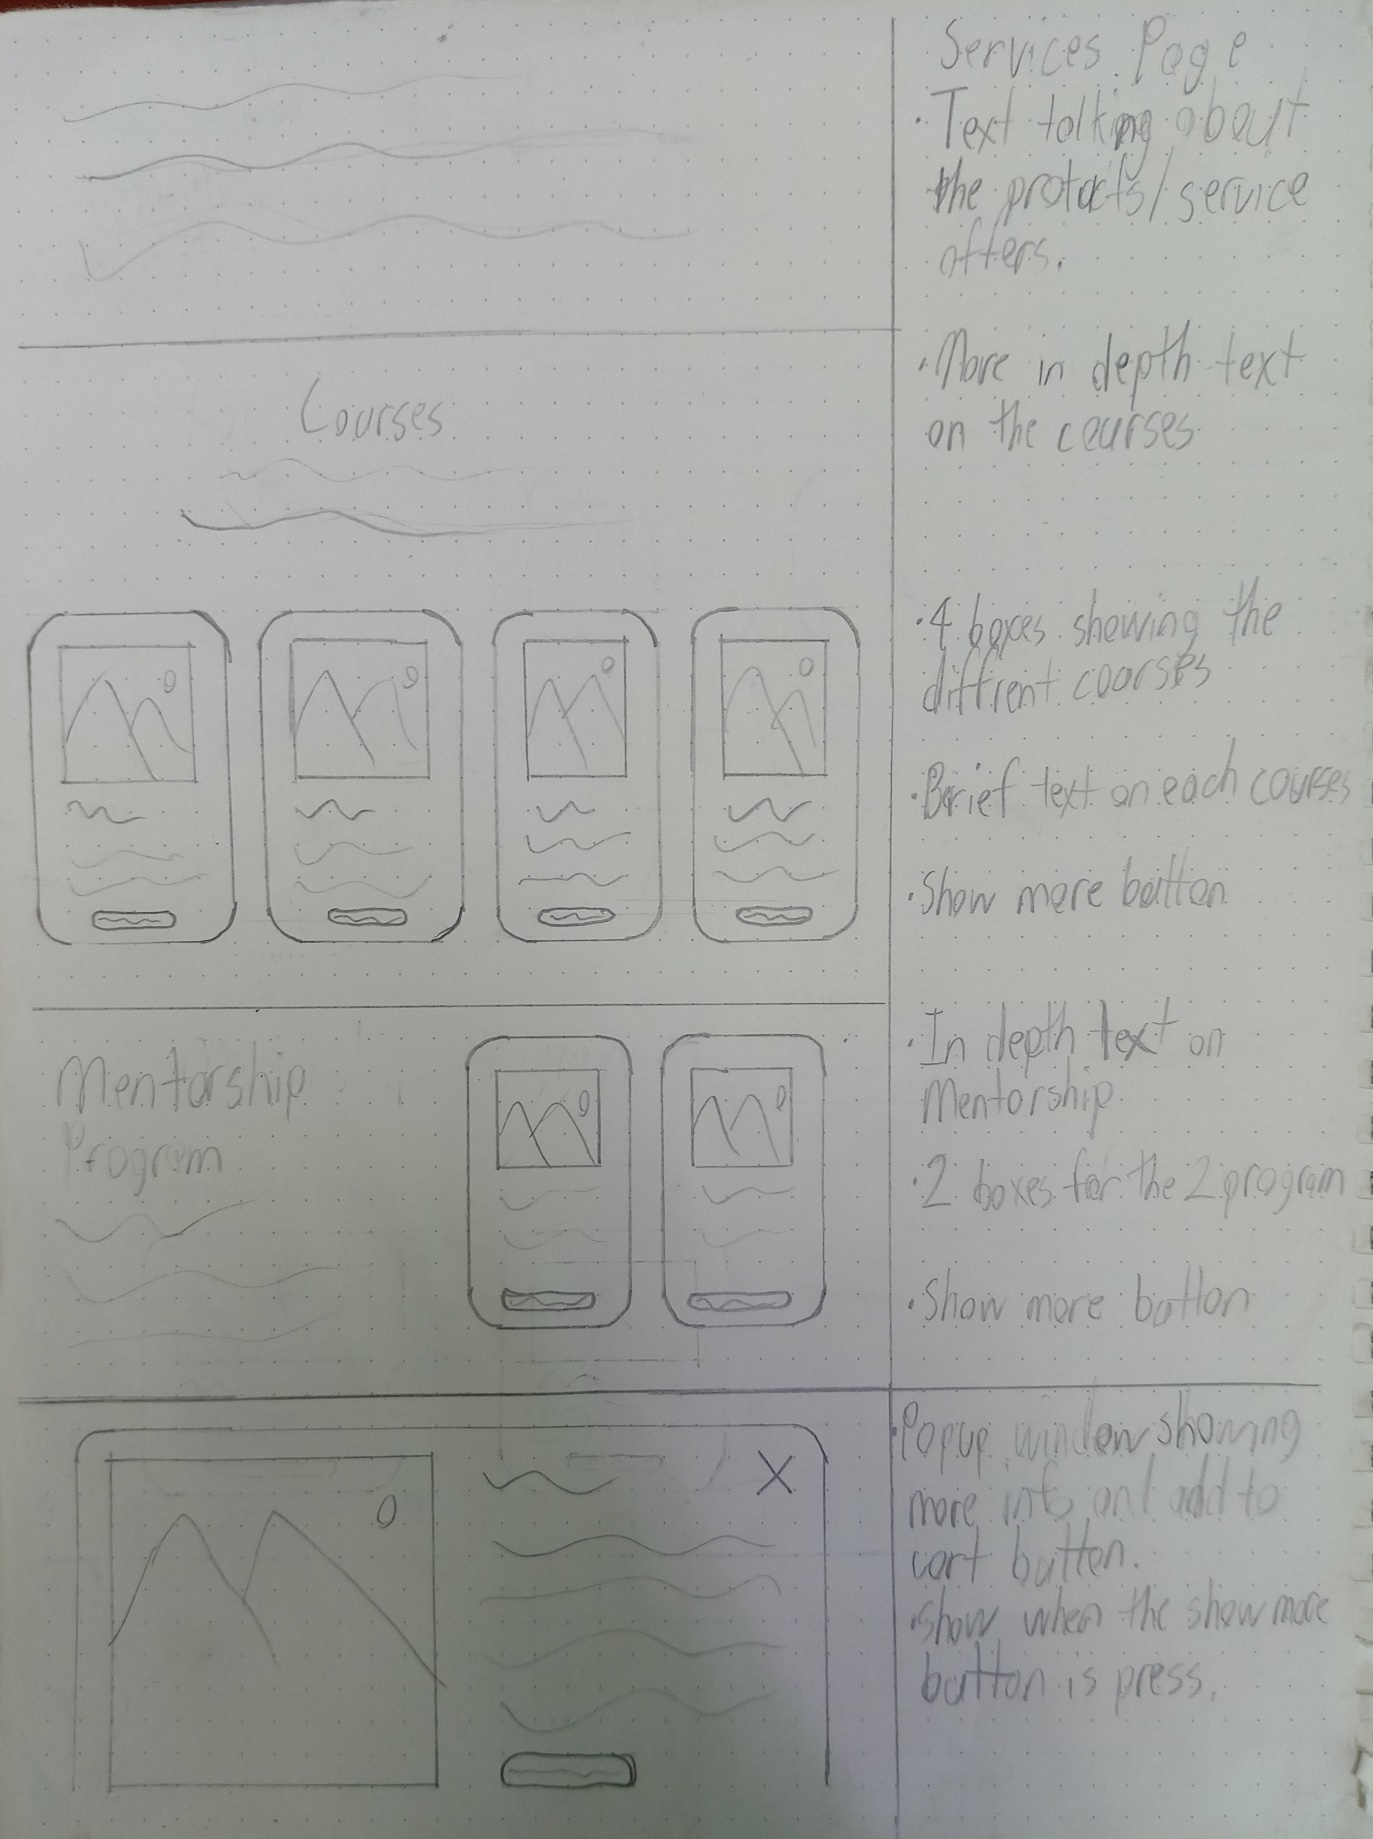 Services Page
· Text talking about
the protucts/service
offers.
· More in depth text
on the courses
Courses
· 4 boxes showing the
diffrent coarses
· Berief text on each courses
· Show more button
· In depth text on
Mentorship
Mentorship
Program
· 2 boxes for the 2 program
· Show more button
· Popup window showing
more info and add to
cart button.
· Show when the show more
button is press.
X